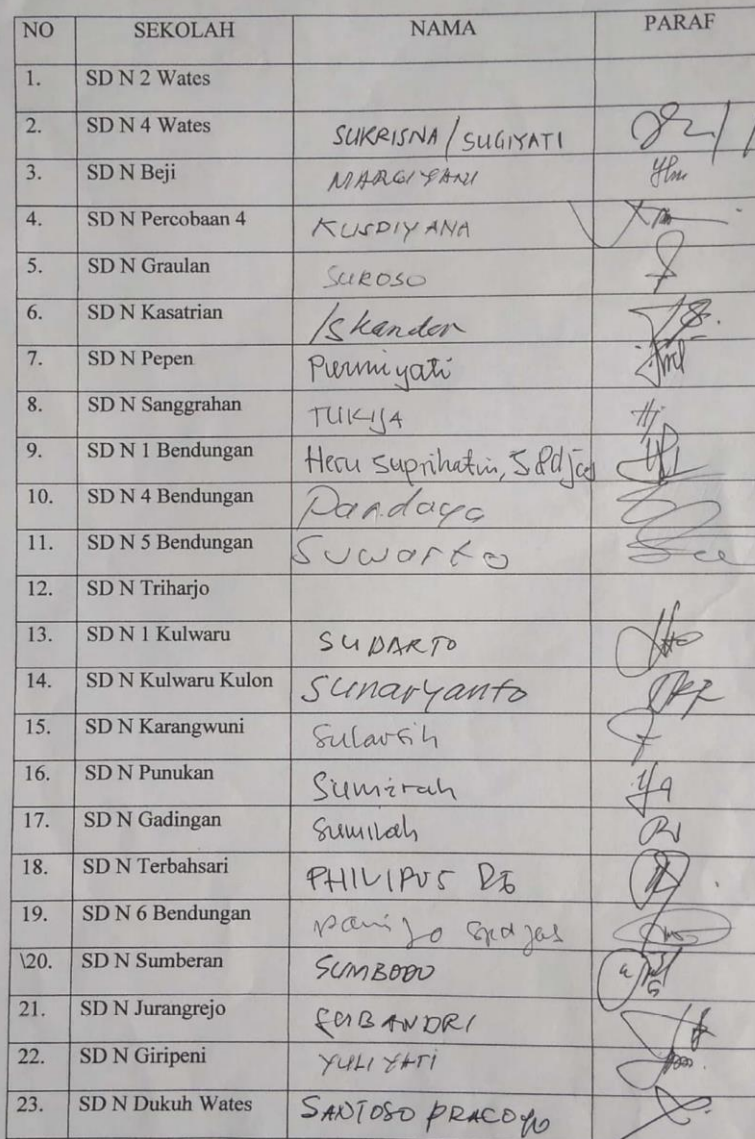 NO SEKOLAH NAMA PARAF
1. SD N 2 Wates
2. SD N 4 Wates SUKRISNA / SUGIYATI
3. SD N Beji MARGIYANI
4. SD N Percobaan 4 KUSDIYANA
5. SD N Graulan SUROSO
6. SD N Kasatrian Iskandar
7. SD N Pepen Purmiyati
8. SD N Sanggrahan TUKIJA
9. SD N 1 Bendungan Heru Suprihatin, S.Pd Jas
10. SD N 4 Bendungan Pandaya
11. SD N 5 Bendungan Suwarto
12. SD N Triharjo
13. SD N 1 Kulwaru SUDARTO
14. SD N Kulwaru Kulon Sunaryanto
15. SD N Karangwuni Sularsih
16. SD N Punukan Sumirah
17. SD N Gadingan Sumilah
18. SD N Terbahsari PHILIPUS
19. SD N 6 Bendungan Panijo Spd Jas
\20. SD N Sumberan SUMBODO
21. SD N Jurangrejo SUBANDRI
22. SD N Giripeni YULIYATI
23. SD N Dukuh Wates SANTOSO PRACOYO